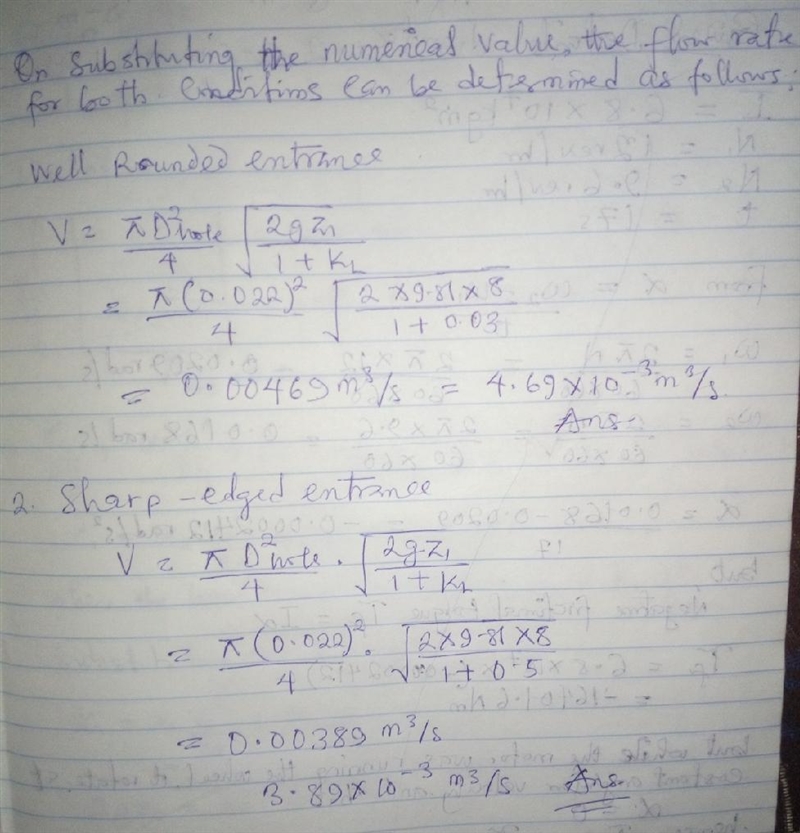 On Substituting the numerical value, the flow rate
for both conditions can be determined as follows:
Well Rounded entrance
V = πD²hole/4 √(2gZ₁/(1 + KL))
= π(0.022)²/4 √(2×9.81×8/(1 + 0.03))
= 0.00469 m³/s = 4.69×10⁻³ m³/s
Ans.
2. Sharp-edged entrance
V = πD²hole/4 · √(2gZ₁/(1 + KL))
= π(0.022)²/4 · √(2×9.81×8/(1 + 0.5))
= 0.00389 m³/s
3.89×10⁻³ m³/s Ans.